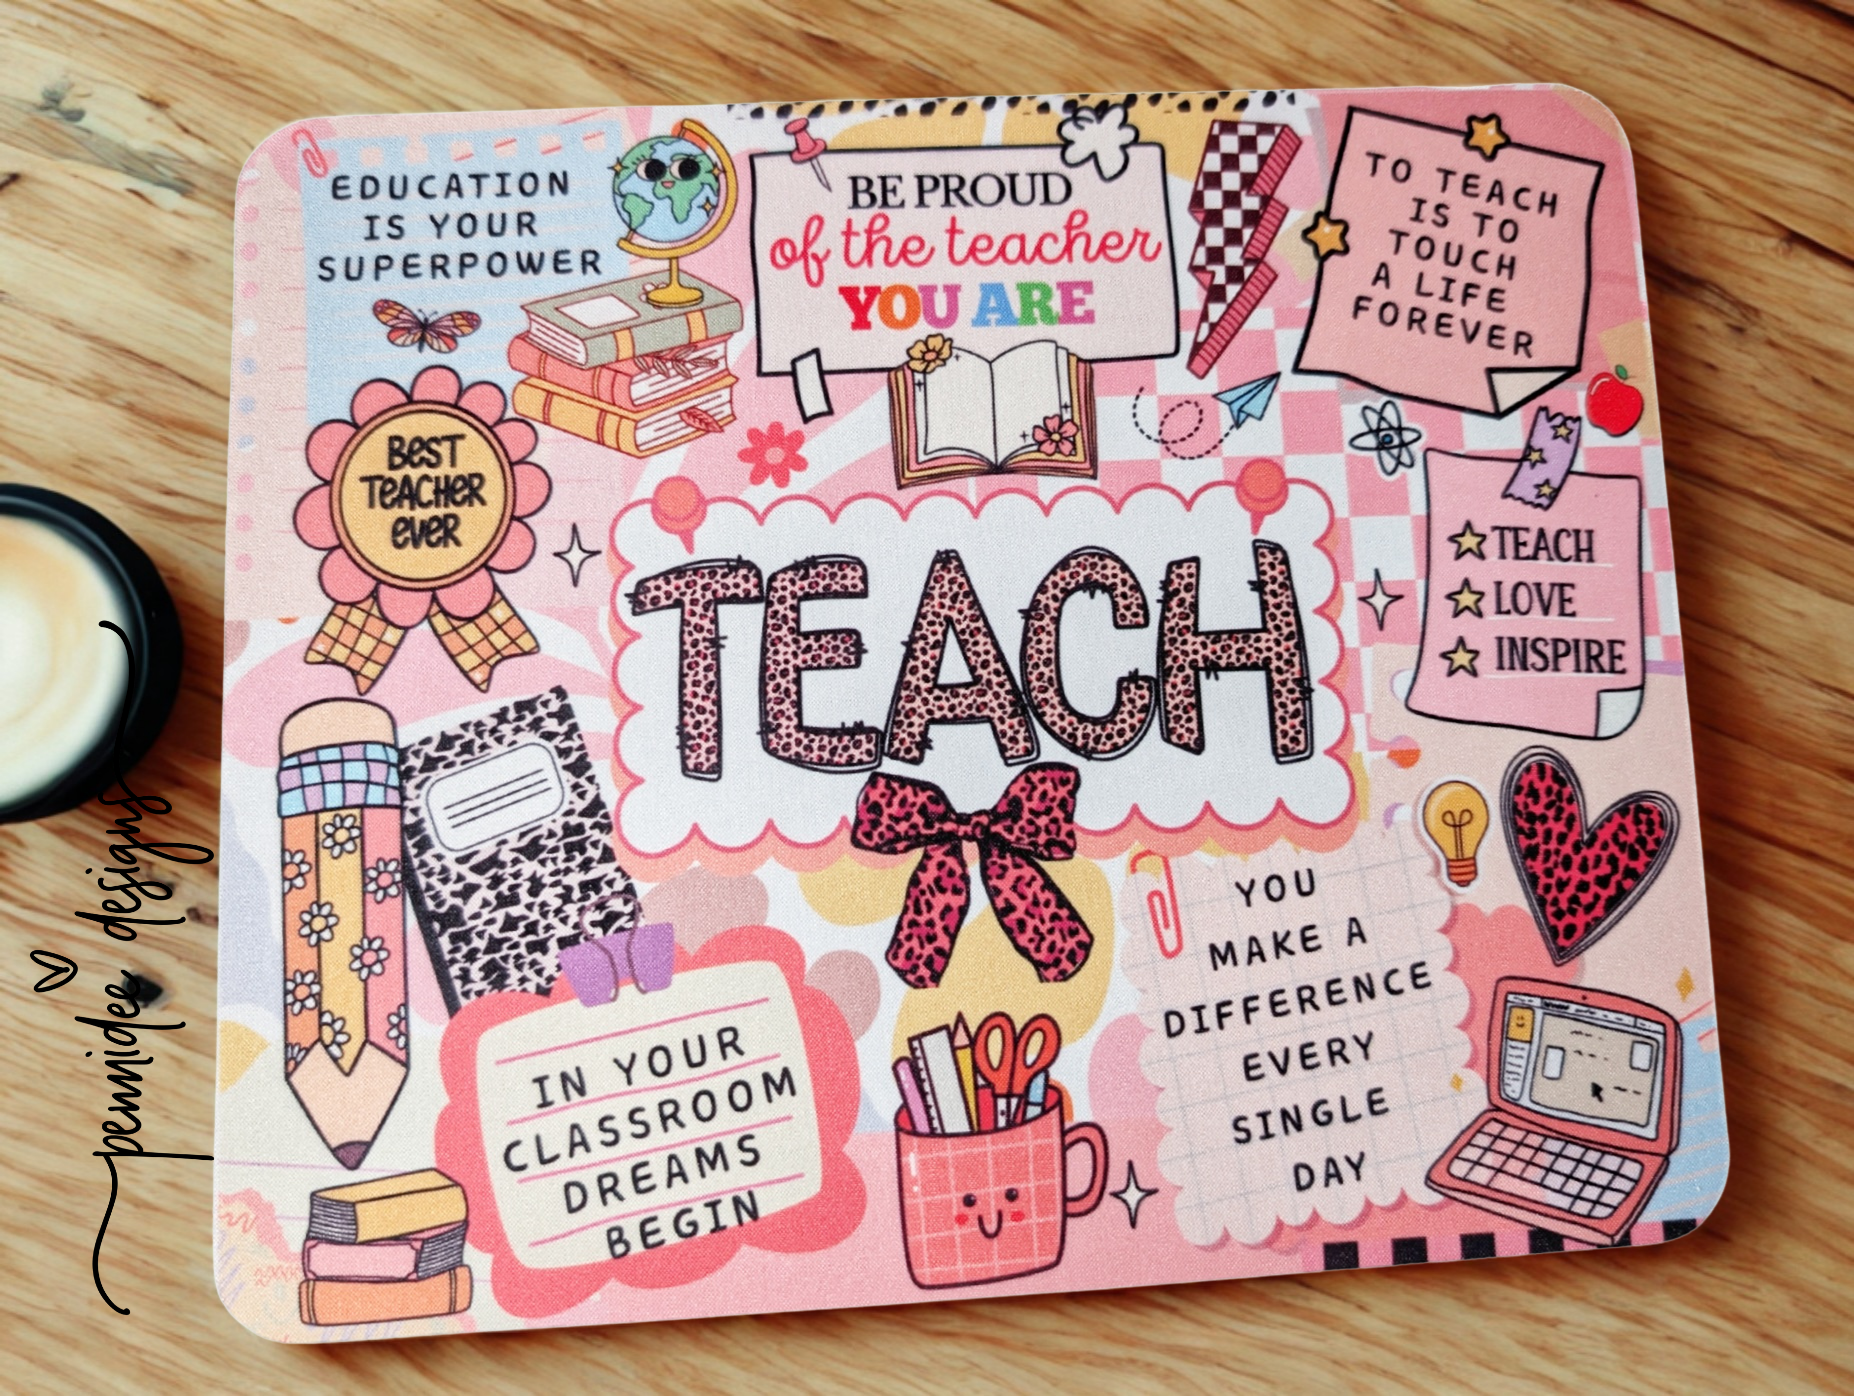 EDUCATION
IS YOUR
SUPERPOWER
BE PROUD
of the teacher
YOU ARE
TO TEACH
IS TO
TOUCH
A LIFE
FOREVER
BEST
TEACHER
EVER
TEACH
TEACH
LOVE
INSPIRE
IN YOUR
CLASSROOM
DREAMS
BEGIN
YOU
MAKE A
DIFFERENCE
EVERY
SINGLE
DAY
pennidee designs